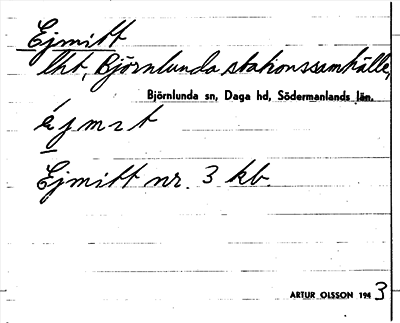 Ejmitt
lht, Björnlunda stationssamhälle,
Björnlunda sn, Daga hd, Södermanlands län.
Ejmitt nr. 3 kb.
ARTUR OLSSON 1943